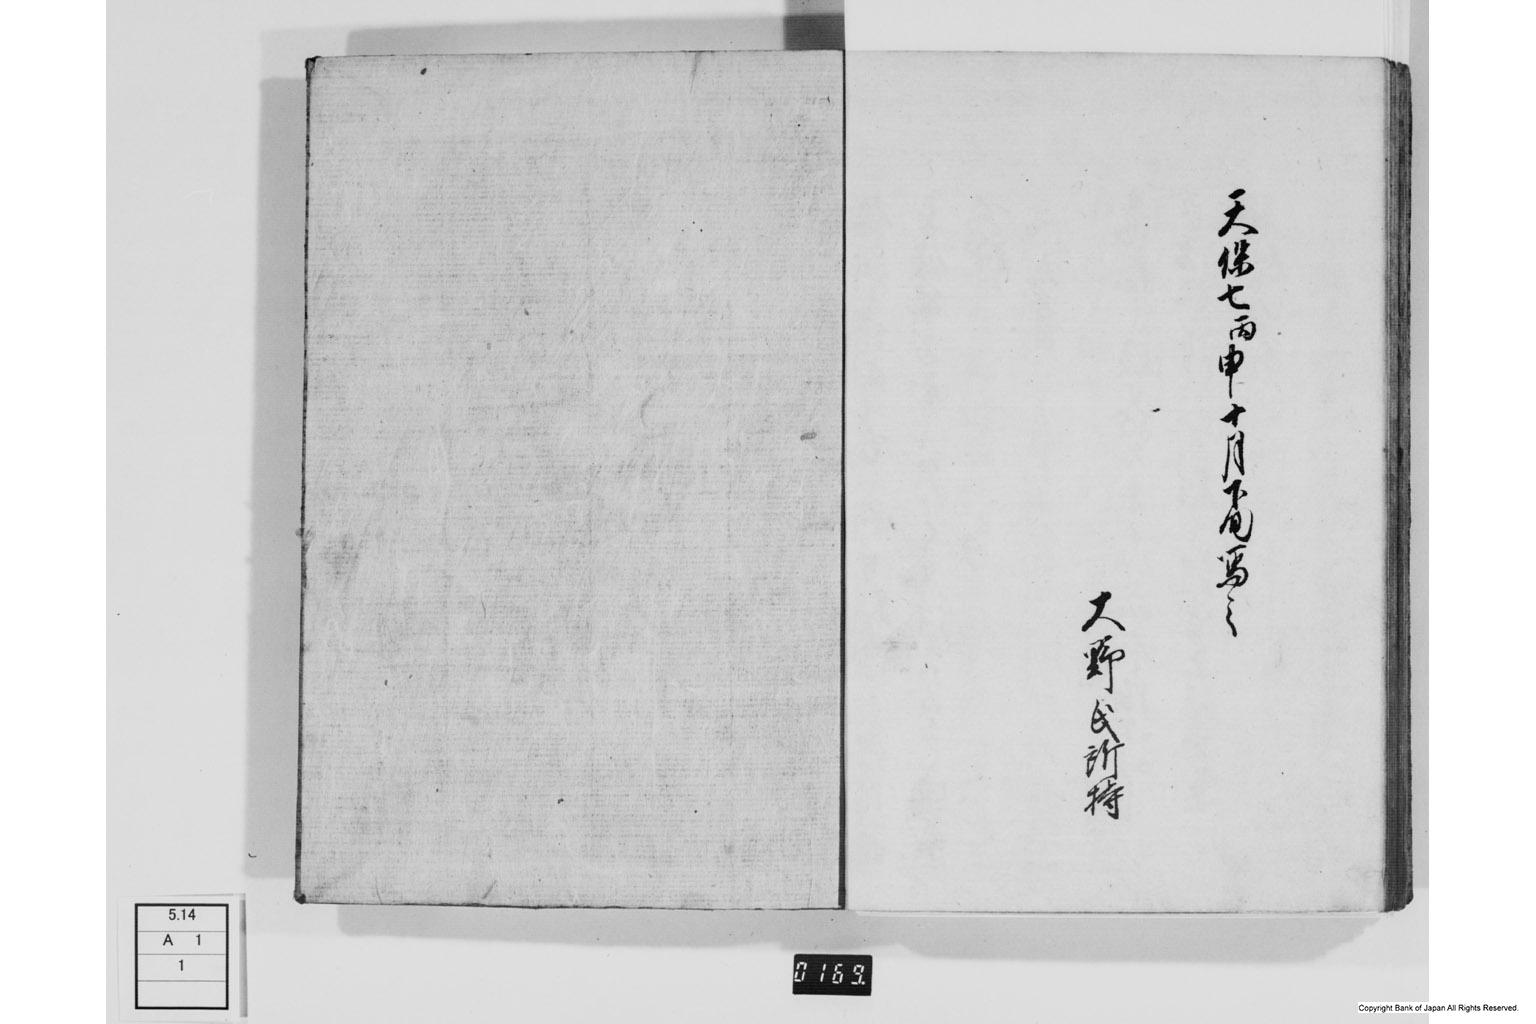 天保七丙申十月下旬写之
大野氏所持
5.14
A 1
1
0169.
Copyright Bank of Japan All Rights Reserved.